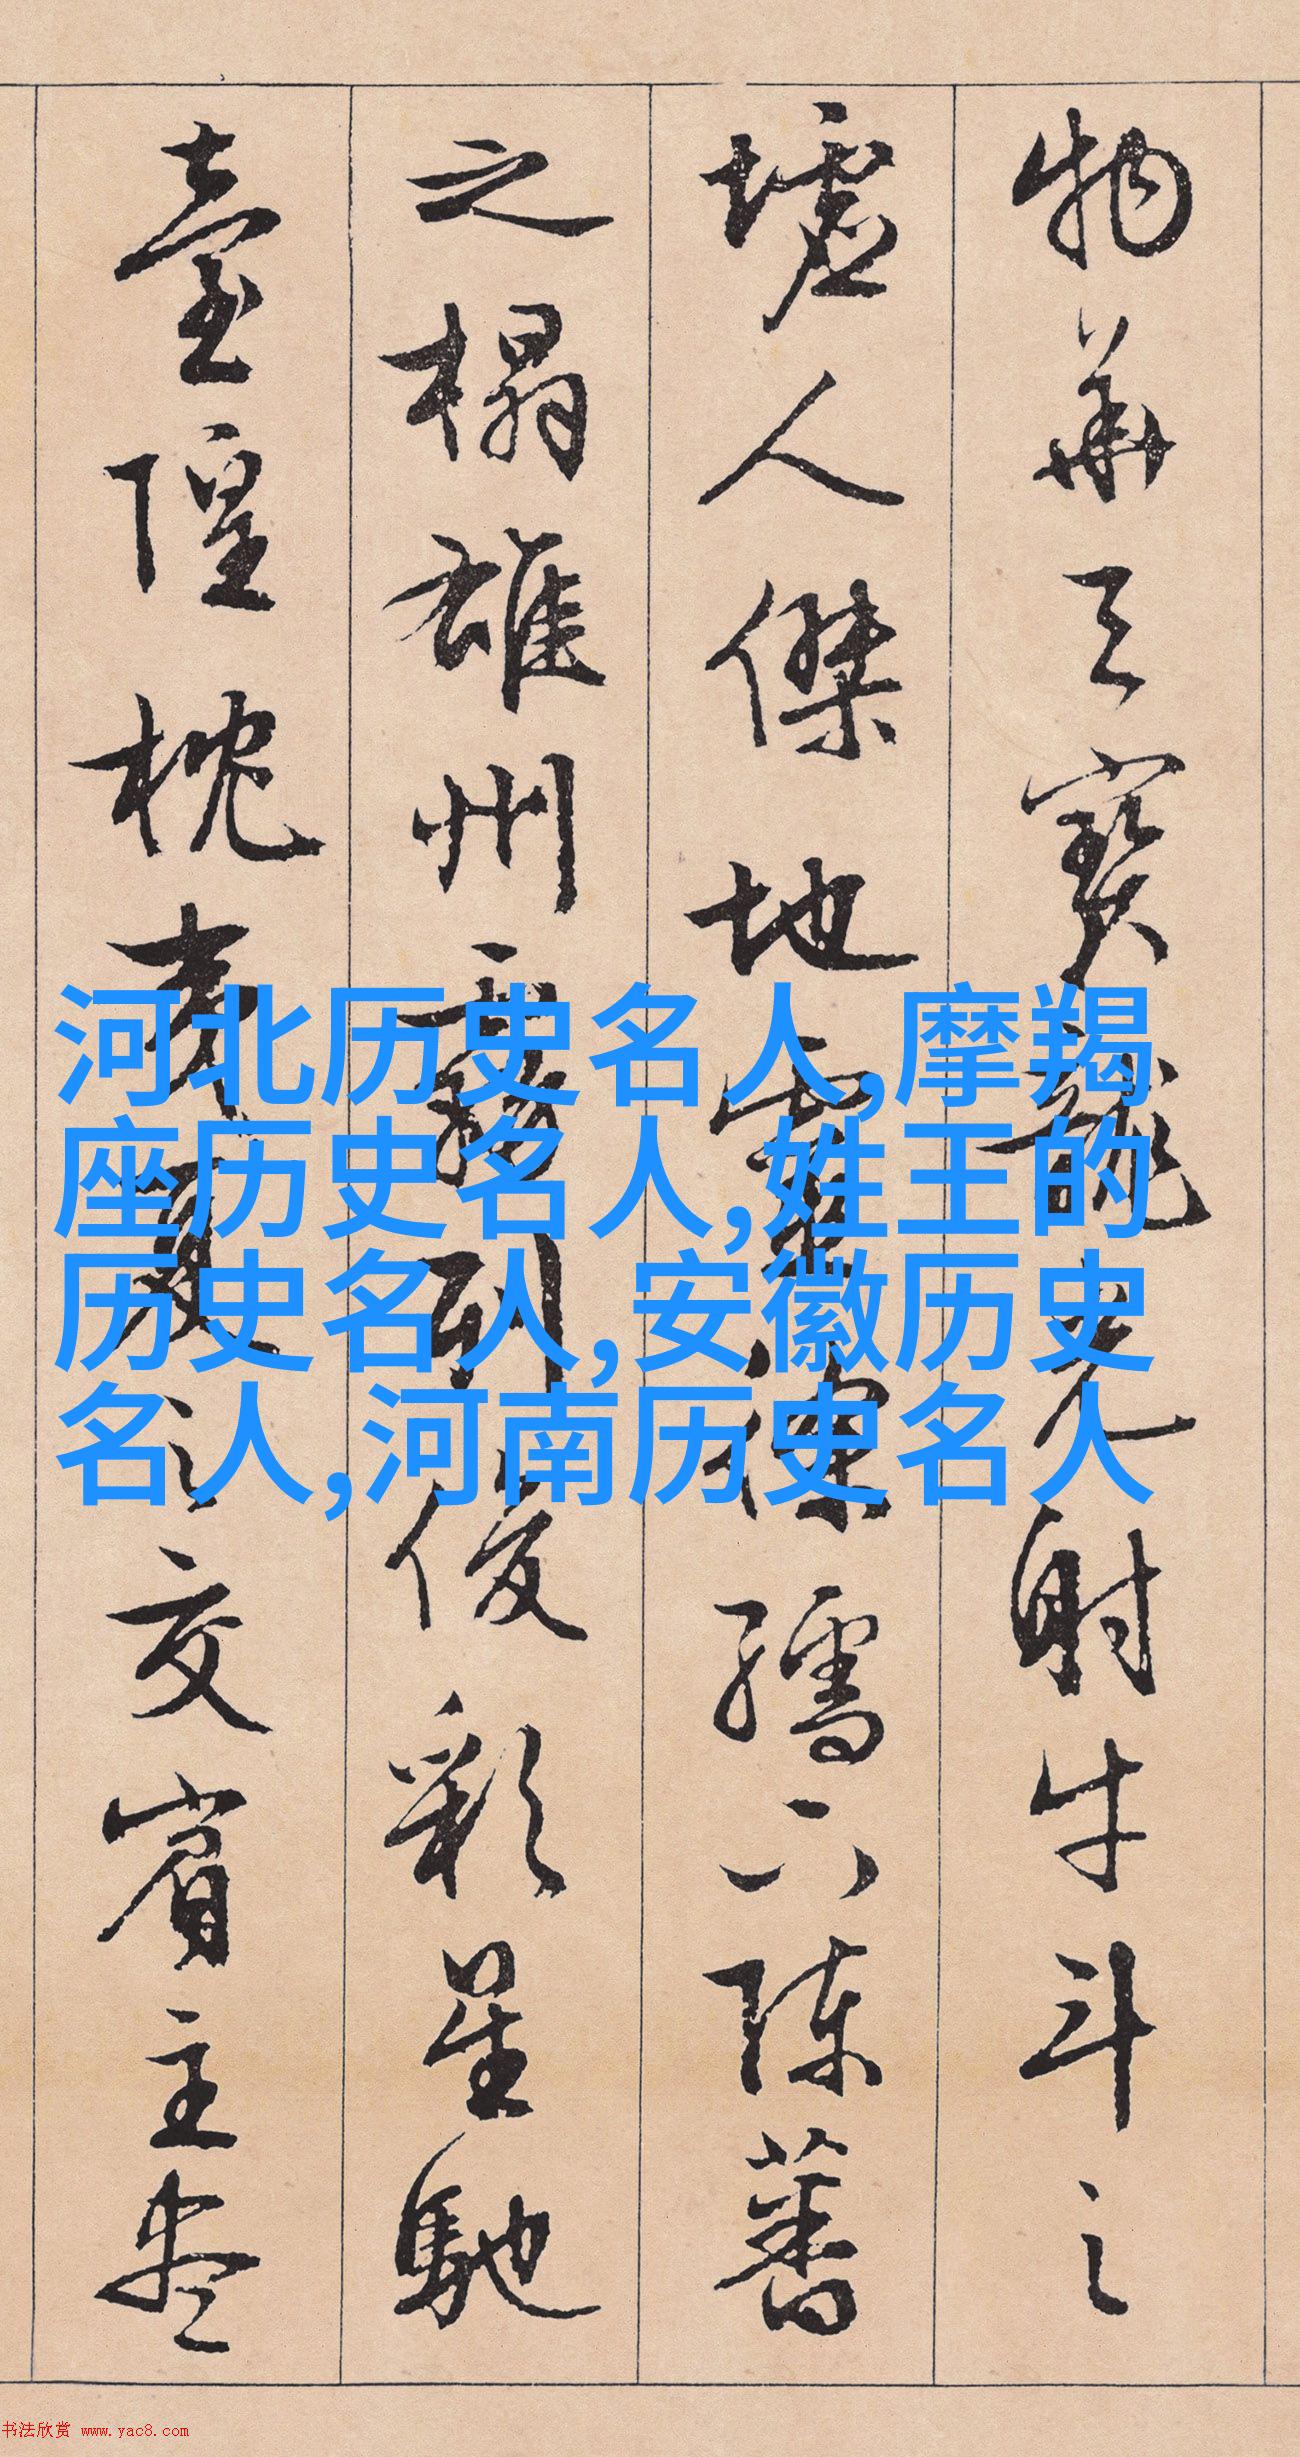 物華天寶龍光射牛斗之
墟人傑地靈徐孺下陳蕃
之榻雄州霧列俊彩星馳
臺隍枕夷夏之交賓主盡
河北历史名人,摩羯
座历史名人,姓王的
历史名人,安徽历史
名人,河南历史名人
书法欣赏 www.yac8.com